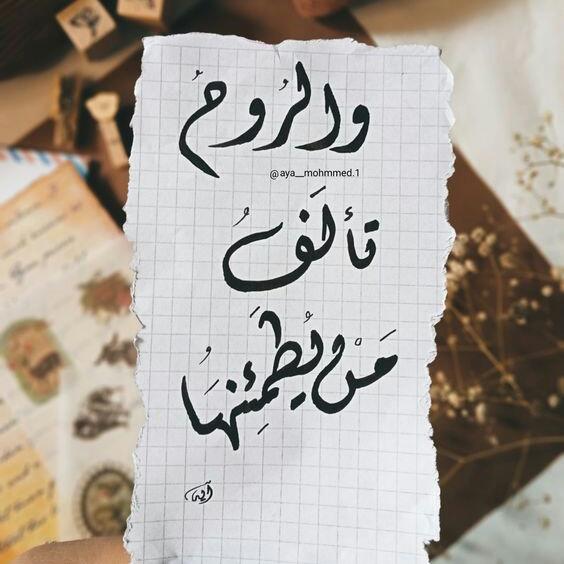 والرُوحُ
@aya__mohmmed.1
تألَفُ
مَنْ يُطَمِئِنهَا
آية